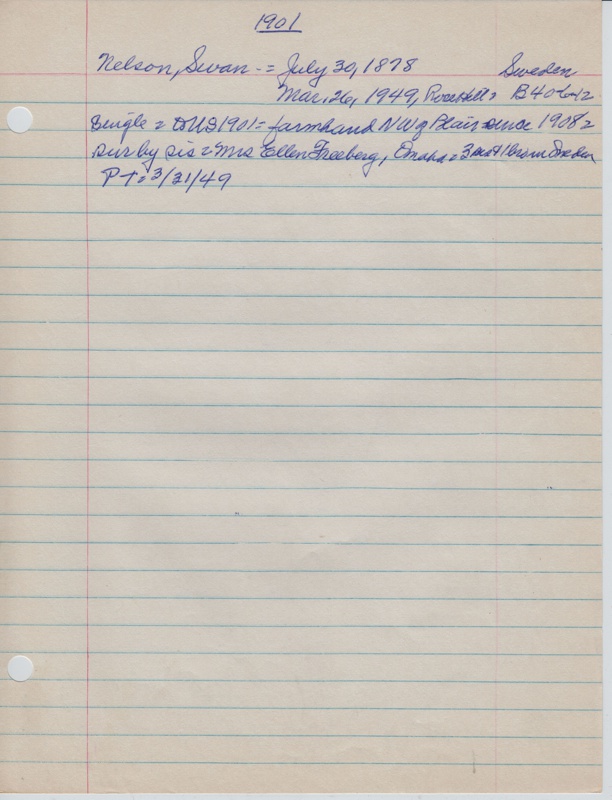 1901
Nelson, Swan -= July 30, 1878 Sweden
Mar. 26, 1949, B40-6-12
Single = US 1901 = farmhand NW of Plain since 1908 =
sur by sis = Mrs Ellen Freeberg, Omaha = 3 sis + 1 bro in Sweden
PT = 3/31/49